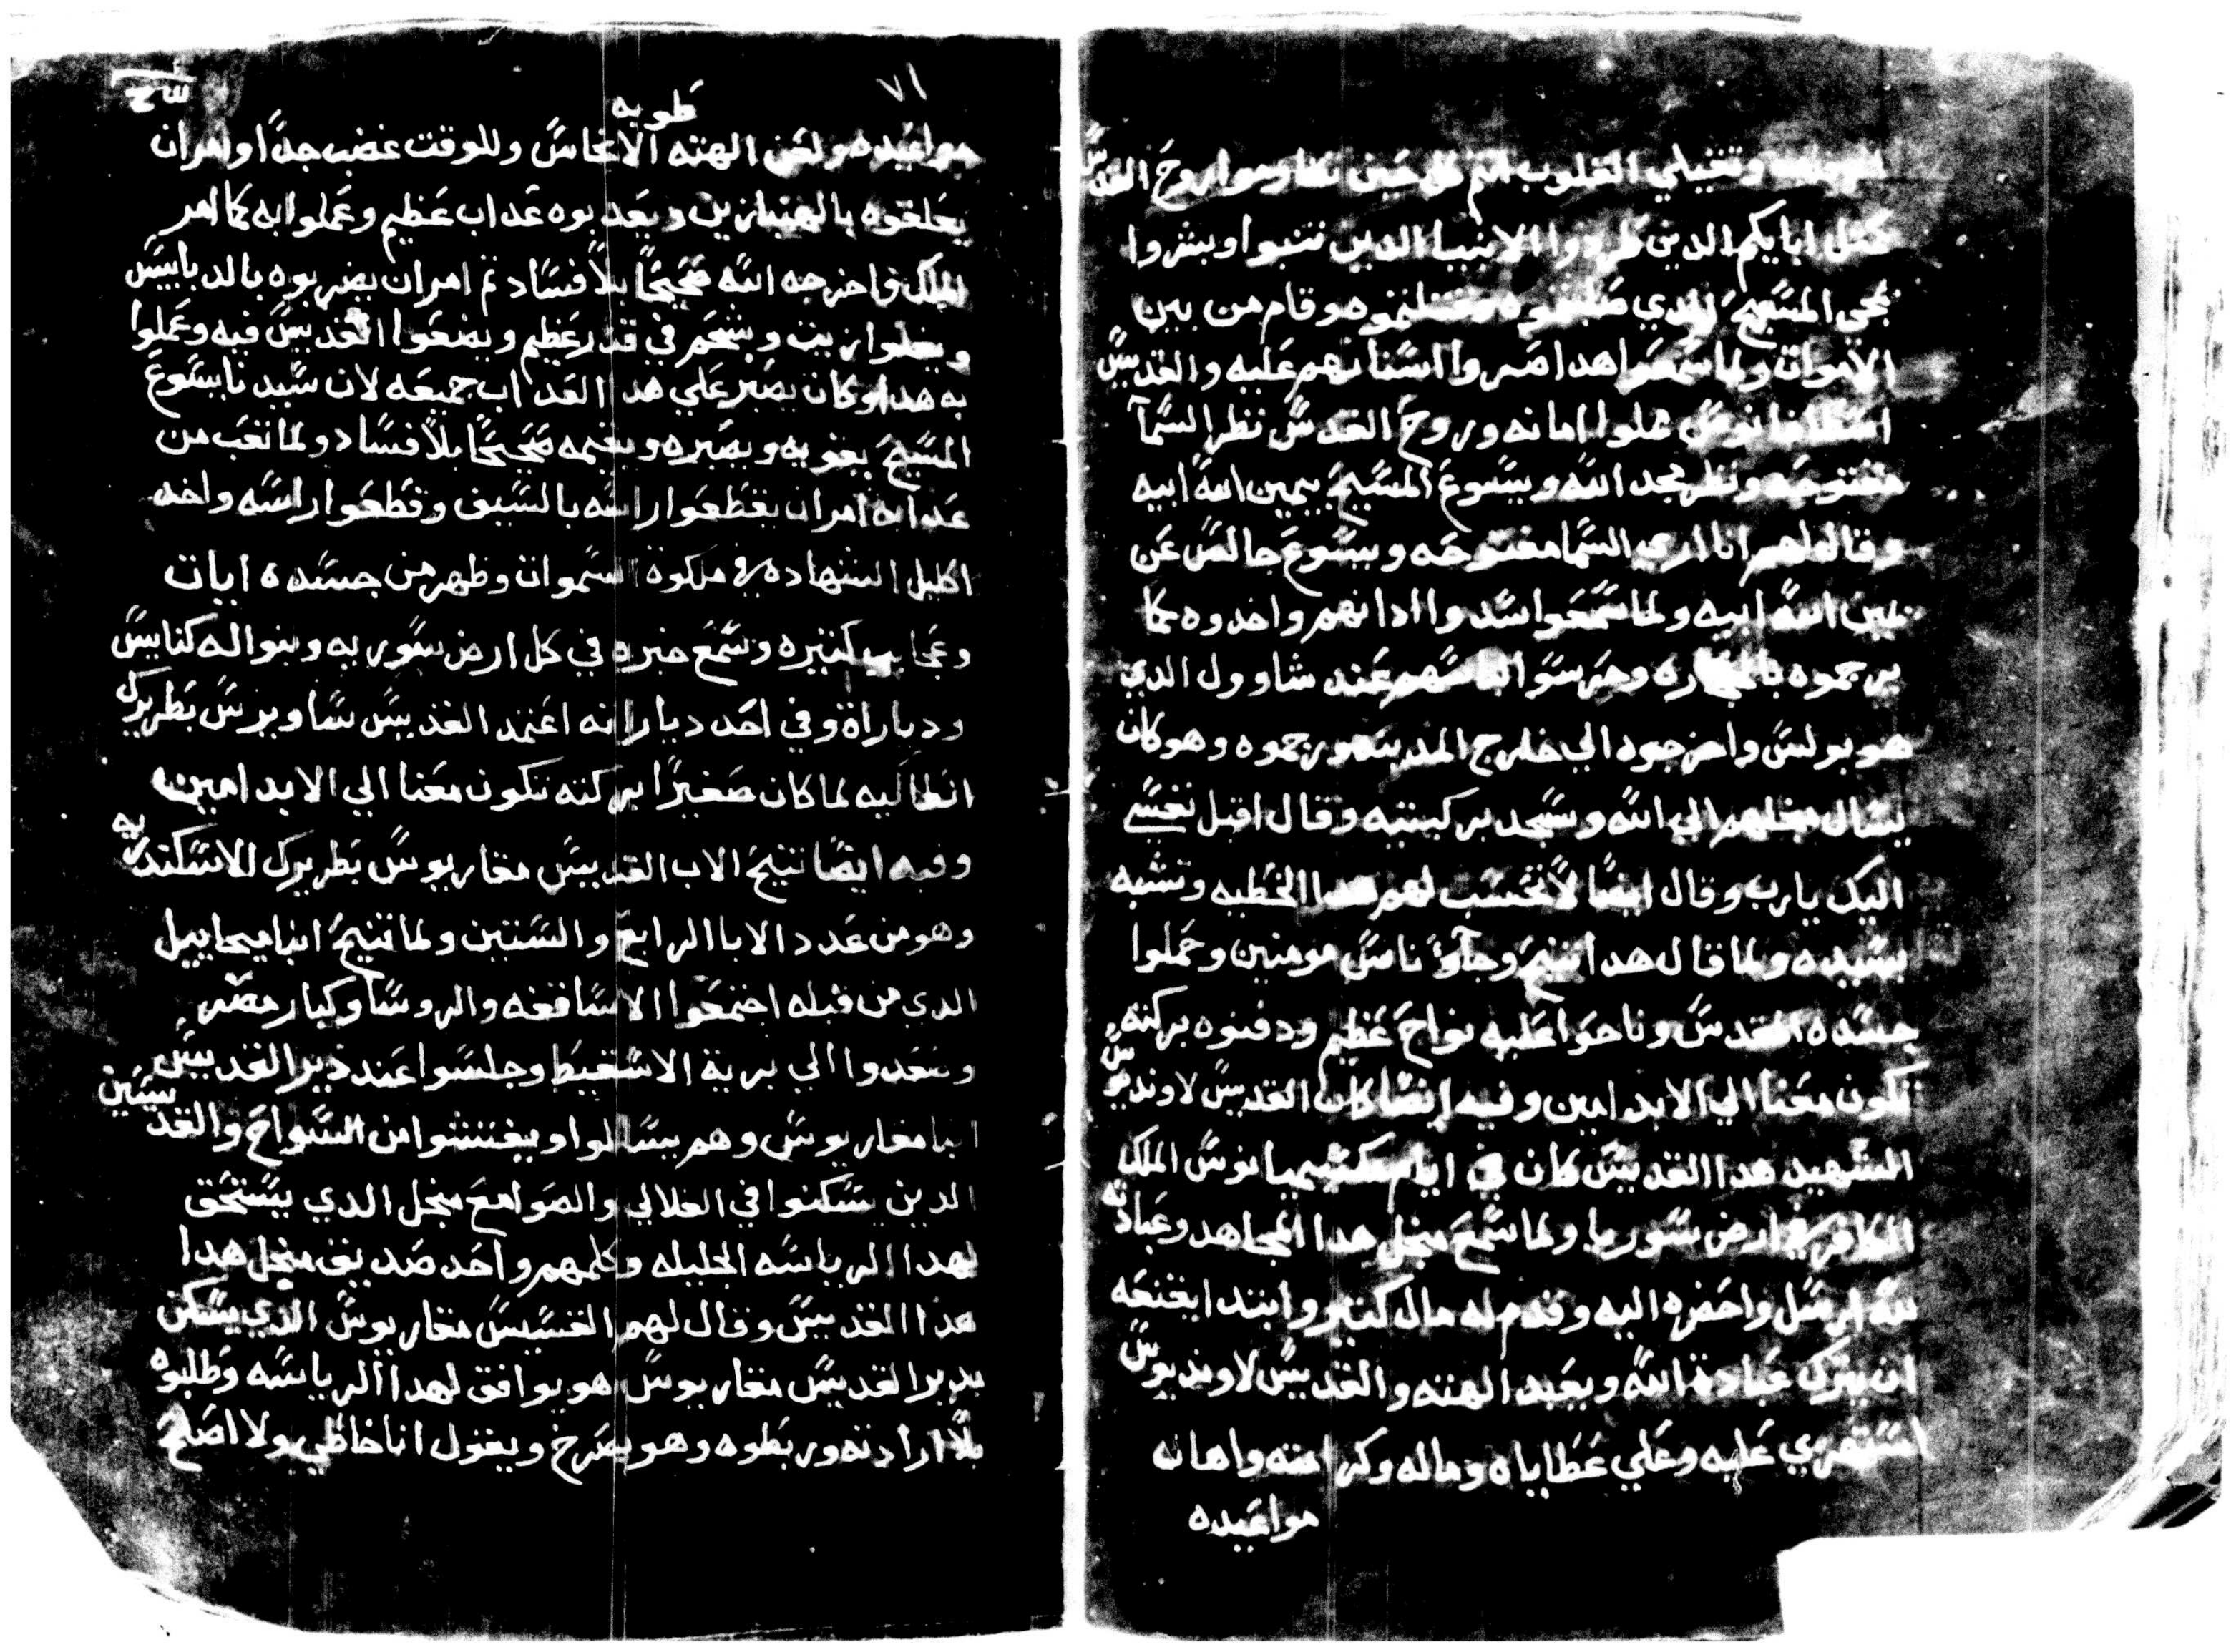 وتقيلي القلوب انتم كل حين تقاوموا روح القدس
كمثل ابايكم الدين طردوا الانبيا الدين تنبوا وبشروا
بمجي المسيح الدي صلبتوه وقتلتموه هو قام من بين
الاموات ولما سمعوا هدا صروا اسنانهم عليه والقديس
اسطافانوس مملوا امانه وروح القدس نظر السما
مفتوحه ونظر مجد الله ويسوع المسيح بيمين الله ابيه
وقال لهم انا اري السما مفتوحه ويسوع جالس عن
يمين الله ابيه ولما سمعوا سدوا ادانهم واخدوه كما
يرجموه بالحجاره وحرسوا لباسهم عند شاوول الدي
هو بولس واخرجوه الي خارج المدينه ورجموه وهو كان
يسال مجلهم الي الله وسجد بركبتيه وقال اقبل نفسي
اليك يارب وقال ايضا لا تحسب لهم هدا الخطيه وتشبه
بسيده ولما قال هدا تنيح وجاوا ناس مومنين وحملوا
جسده المقدس وناحوا عليه نواح عظيم ودفنوه بركته
تكون معنا الي الابد امين وفيه ايضا كان القديس لاونديوس
الشهيد هدا القديس كان في ايام مكسيميانوس الملك
الكافر في ارض سوريا ولما سمع مجل هدا المجاهد وعبادته
لله ارسل واحضره اليه وقدم له مال كتير وابتدا يقنعه
ان يترك عبادة الله ويعبد الهته والقديس لاونديوس
استهزي عليه وعلي عطاياه وماله وكرامته واهانه
مواعيده
٧١
طوبه
مواعيده ولعن الهته الانجاس وللوقت غضب جدا وامر ان
يعلقوه بالهنبازين ويعدبوه عداب عظيم وعملوا به كما امر
الملك واخرجه الله صحيحا بلا فساد تم امر ان يضربوه بالدبابيس
ويغلوا زيت وشحم في قدر عظيم ويضعوا القديس فيه وعملوا
به هدا وكان يصبر علي هدا العداب جميعه لان سيدنا يسوع
المسيح يقويه ويصبره ويقيمه صحيحا بلا فساد ولما تعب من
عدابه امر ان يقطعوا راسه بالسيف وقطعوا راسه واخد
اكليل الشهاده في ملكوة السموات وظهر من جسده ايات
وعجايب كتيره وسمع خبره في كل ارض سوريه وبنوا له كنايس
وديارات وفي احد دياراته اعتمد القديس ساويرس بطريرك
انطاكيه لما كان صغيرا بركته تكون معنا الي الابد امين
وفيه ايضا تنيح الاب القديس مقاريوس بطريرك الاسكندريه
وهو من عدد الابا الرابع والستين ولما تنيح انبا ميخاييل
الدي من قبله اجتمعوا الاساقفه والروسا وكبار مصر
وصعدوا الي برية الاسقيط وجلسوا عند دير القديس
انبا مقاريوس وهم يسالوا ويفتشوا من السواح والقديسين
الدين يسكنوا في القلالي والصوامع مجل الدي يستحق
لهدا الرياسه الجليله وكلمهم واحد صديق مجل هدا
هدا القديس وقال لهم القسيس مقاريوس الدي يسكن
بدير القديس مقاريوس هو يوافق لهدا الرياسه وطلبوه
بلا ارادته وربطوه وهو يصرخ ويقول انا خاطي ولا اصلح